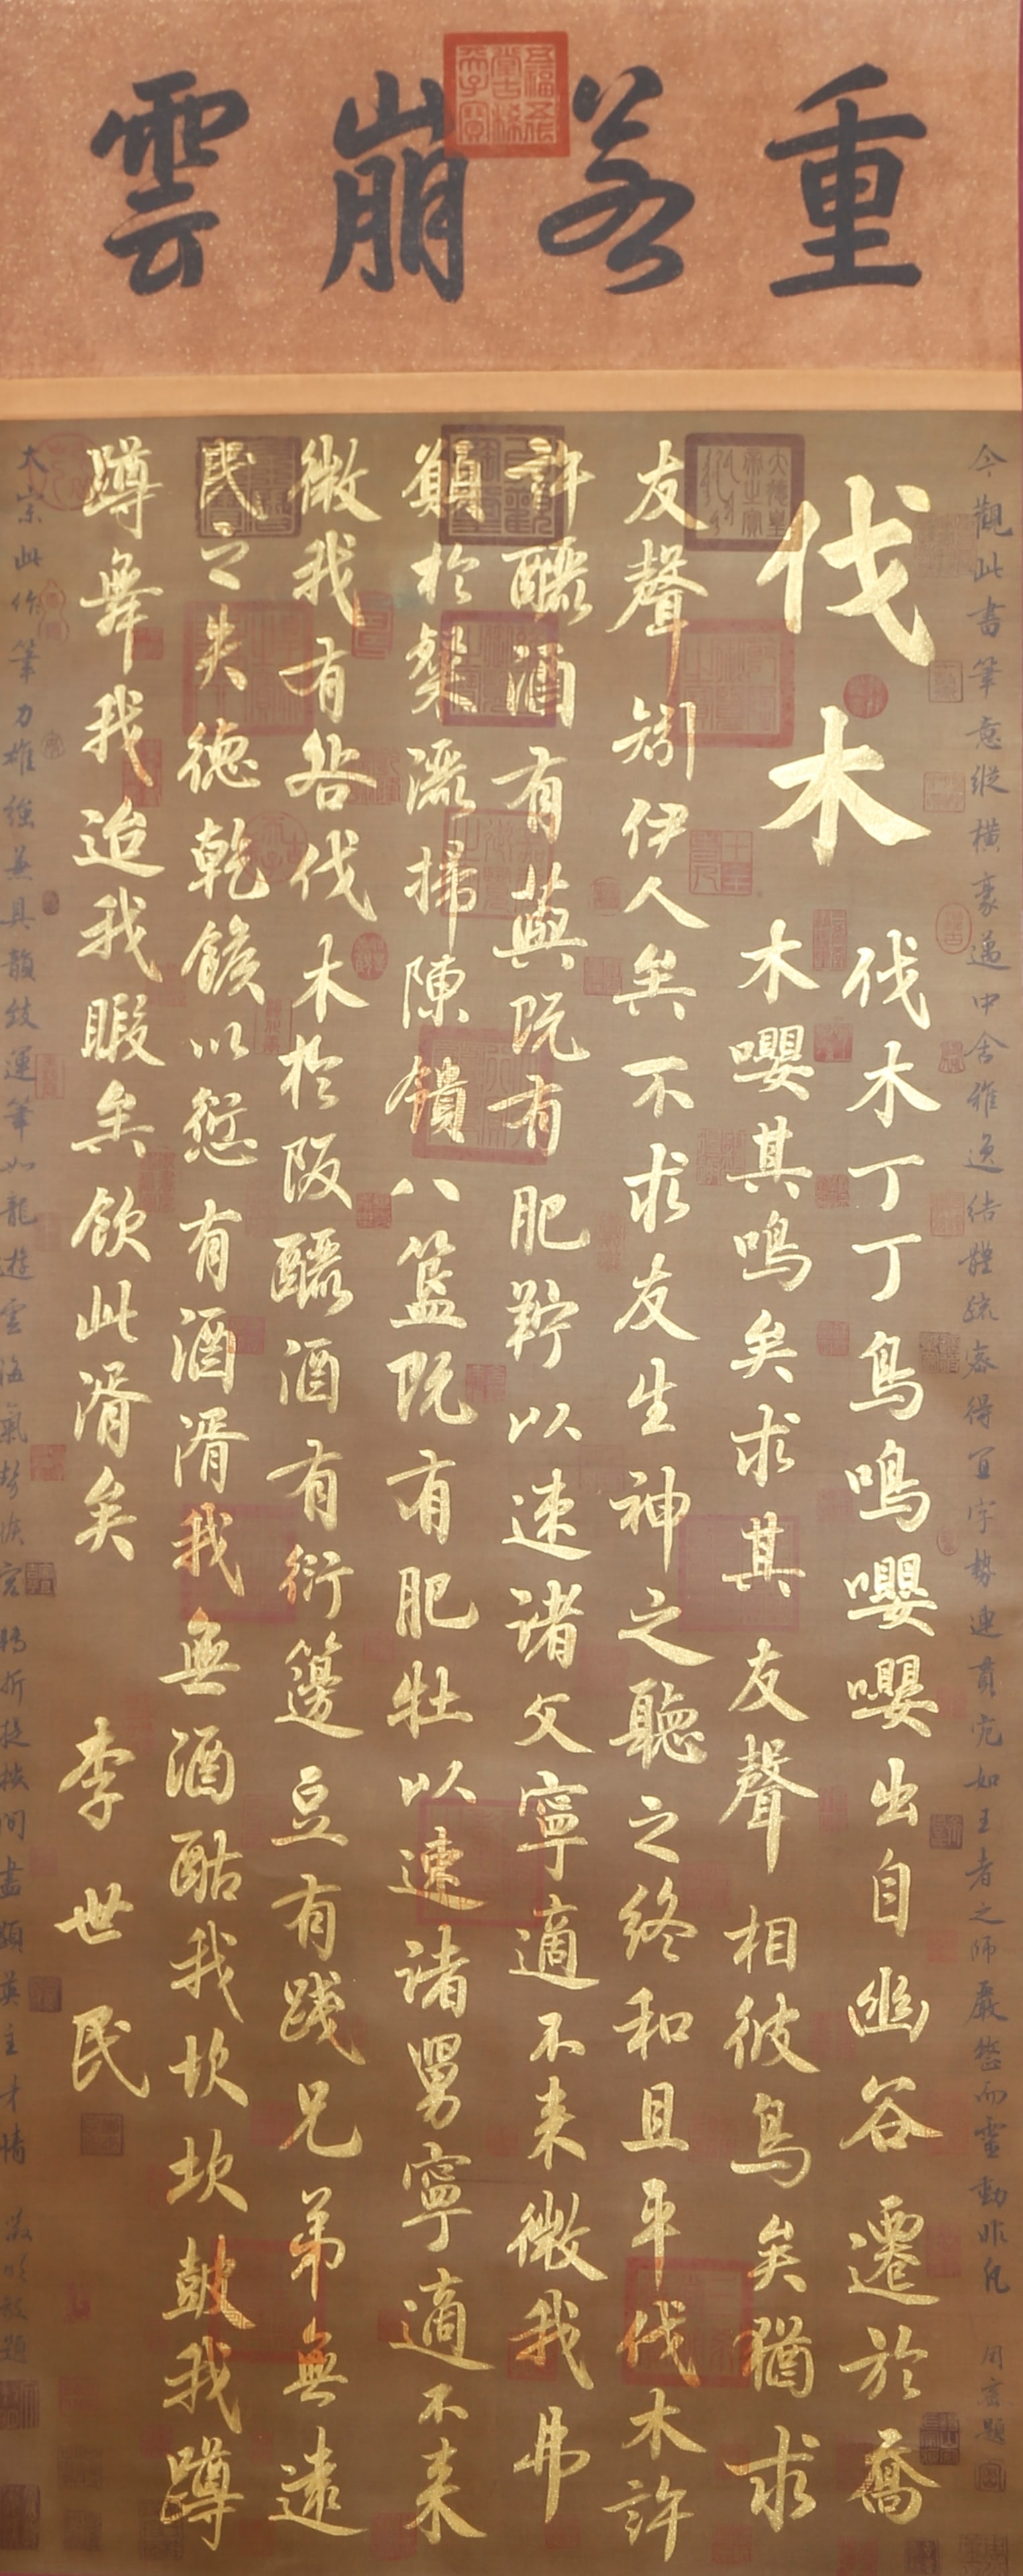 重若崩雲
今觀此書筆意縱橫豪邁中含雅逸結體疏密得宜字勢連貫宛如王者之師嚴整而靈動非凡
周密題
伐木
伐木丁丁鳥鳴嚶嚶出自幽谷遷於喬
木嚶其鳴矣求其友聲相彼鳥矣猶求
友聲矧伊人矣不求友生神之聽之終和且平伐木許
許釃酒有藇既有肥羜以速諸父寧適不来微我弗
顧於粲灑掃陳饋八簋既有肥牡以速諸舅寧適不来
微我有咎伐木於阪釃酒有衍籩豆有踐兄弟無遠
民之失德乾餱以愆有酒湑我無酒酤我坎坎鼓我蹲
蹲舞我迨我暇矣飲此湑矣
李世民
太宗此作筆力雄強兼具韻致運筆如龍遊雲海氣勢恢宏轉折提按間盡顯英主才情